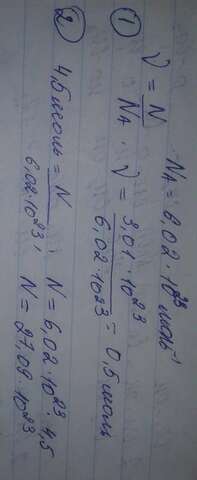 N_A = 6,02 · 10²³ моль⁻¹
ν = N/N_A
① ν = 3,01 · 10²³ / 6,02 · 10²³ = 0,5 моль
② 4,5 моль = N / 6,02 · 10²³ ; N = 6,02 · 10²³ · 4,5
N = 27,09 · 10²³